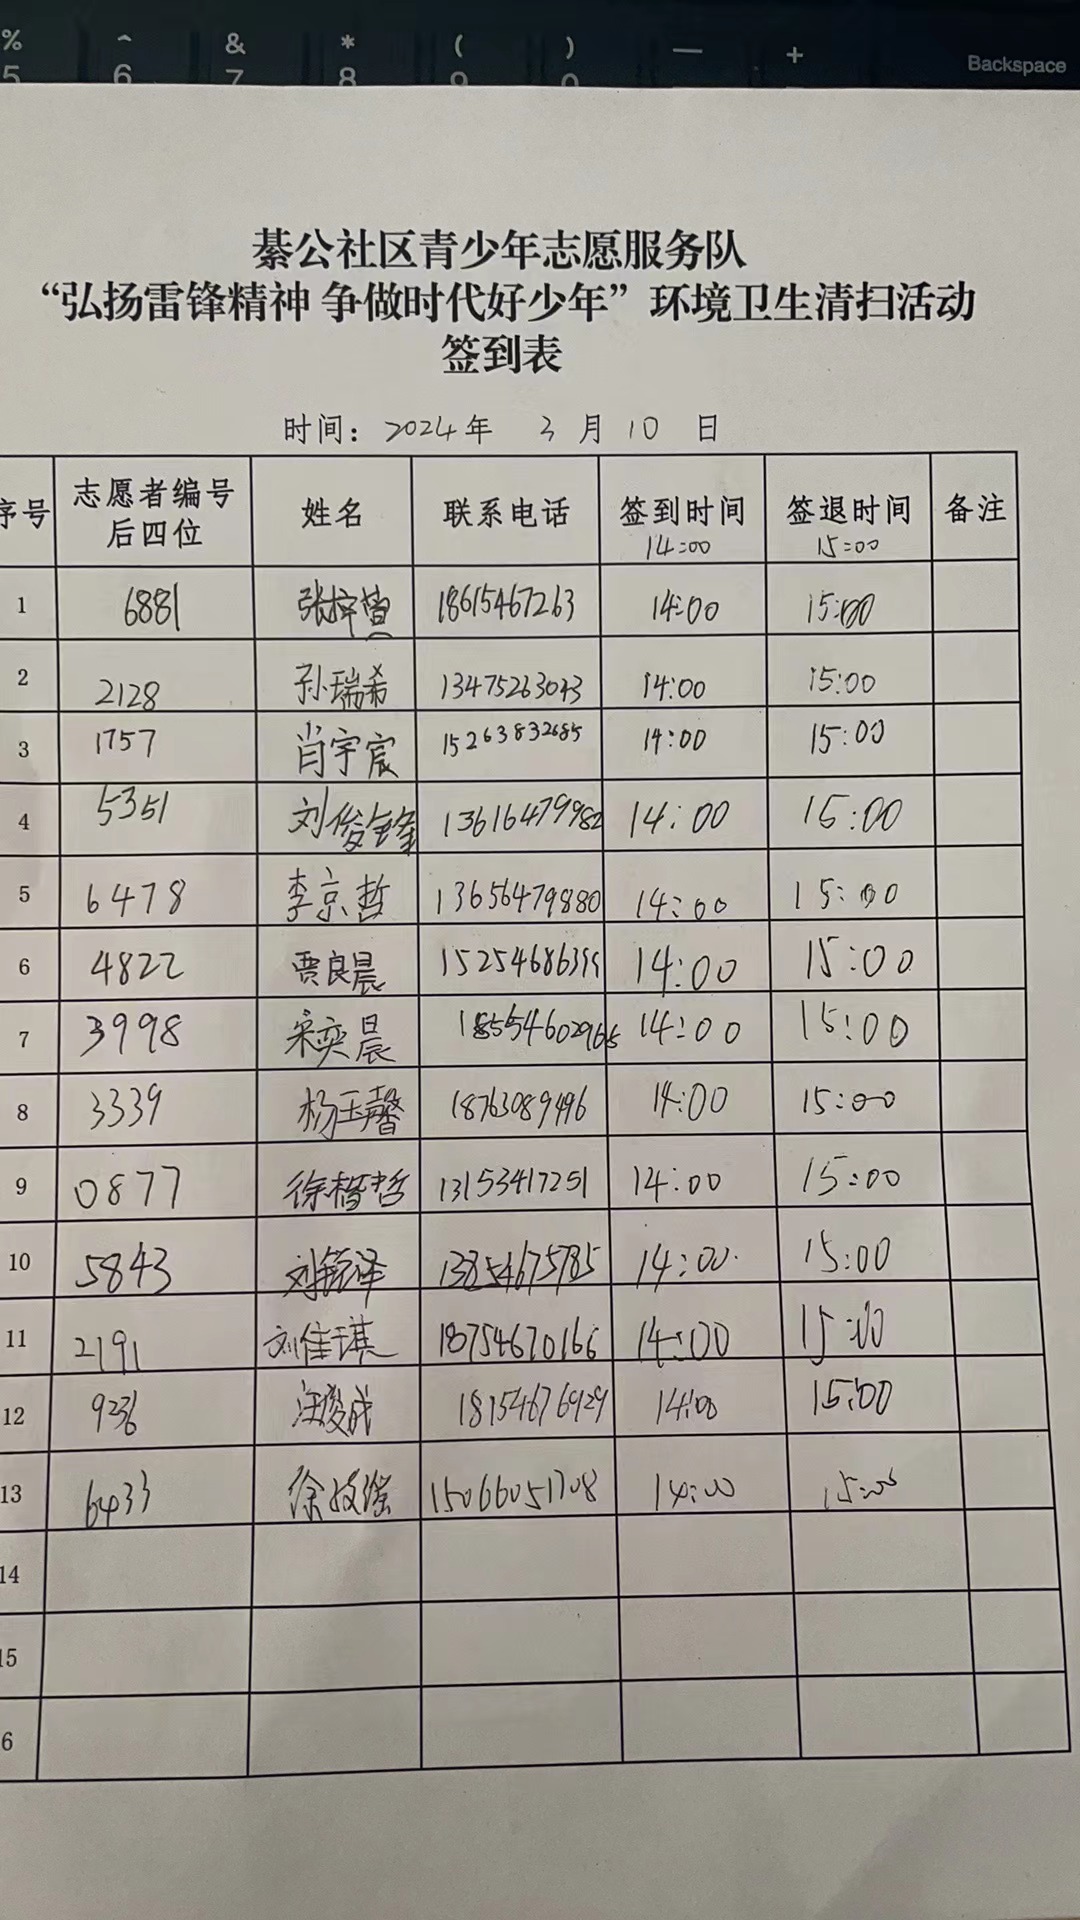 % ^ & * ( ) — +
5 6 7 8 9 0 Backspace
綦公社区青少年志愿服务队
“弘扬雷锋精神 争做时代好少年”环境卫生清扫活动
签到表
时间: 2024年 3月10日
序号 志愿者编号后四位 姓名 联系电话 签到时间 14:00 签退时间 15:00 备注
1 6881 张梓萱 18615467263 14:00 15:00
2 2128 孙瑞希 13475263043 14:00 15:00
3 1757 肖宇宸 15263832685 14:00 15:00
4 5351 刘俊锋 13616479982 14:00 15:00
5 6478 李京哲 13656479880 14:00 15:00
6 4822 贾良晨 15254686399 14:00 15:00
7 3998 宋奕晨 14:00 15:00
8 3339 杨玉馨 18763089496 14:00 15:00
9 0877 徐楷哲 13153417251 14:00 15:00
10 5843 刘 泽 13854675785 14:00 15:00
11 2191 刘佳琪 18754670166 14:00 15:00
12 汪俊成 18154676929 14:00 15:00
13 6433 徐 15066051708 14:00 15:00
14
15
6